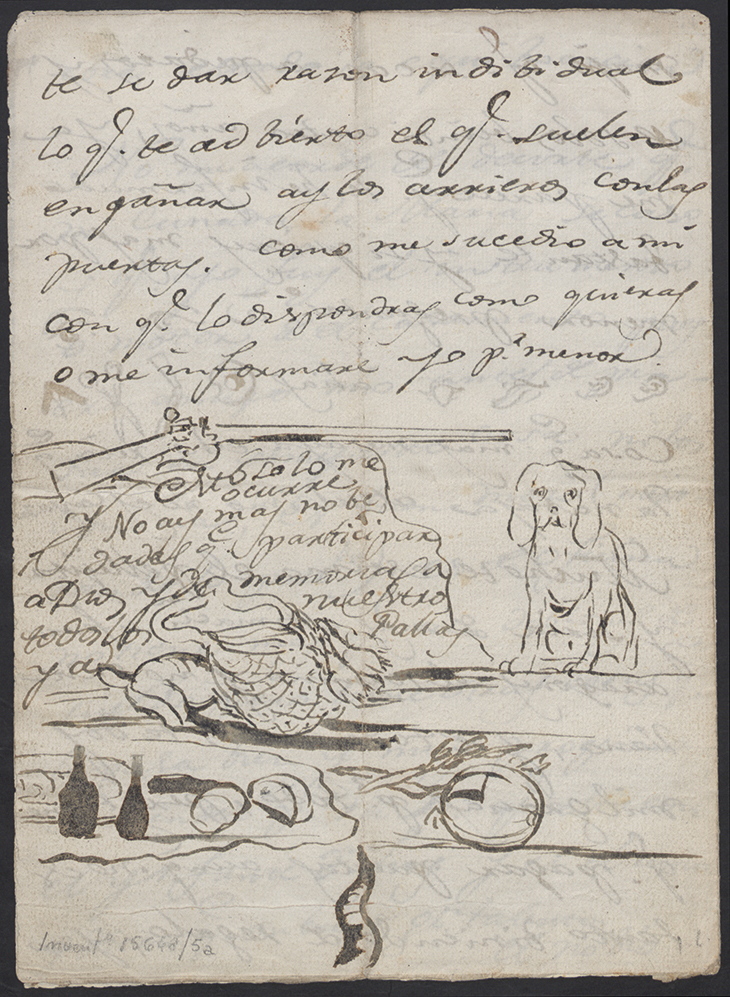 te se dar razon indibidual
lo q.e te adbierto el q.e suelen
engañar ay los arrieros con las
puertas. como me sucedio a mi
con q.e lo dispondras como quieras
o me informare yo p.r menor.
solo me
ocurre
y No ay mas nobe
dades q.e participar
a Dios y De memorias a
todos los nuestro
y a Pallas
Invent.º 15648/52